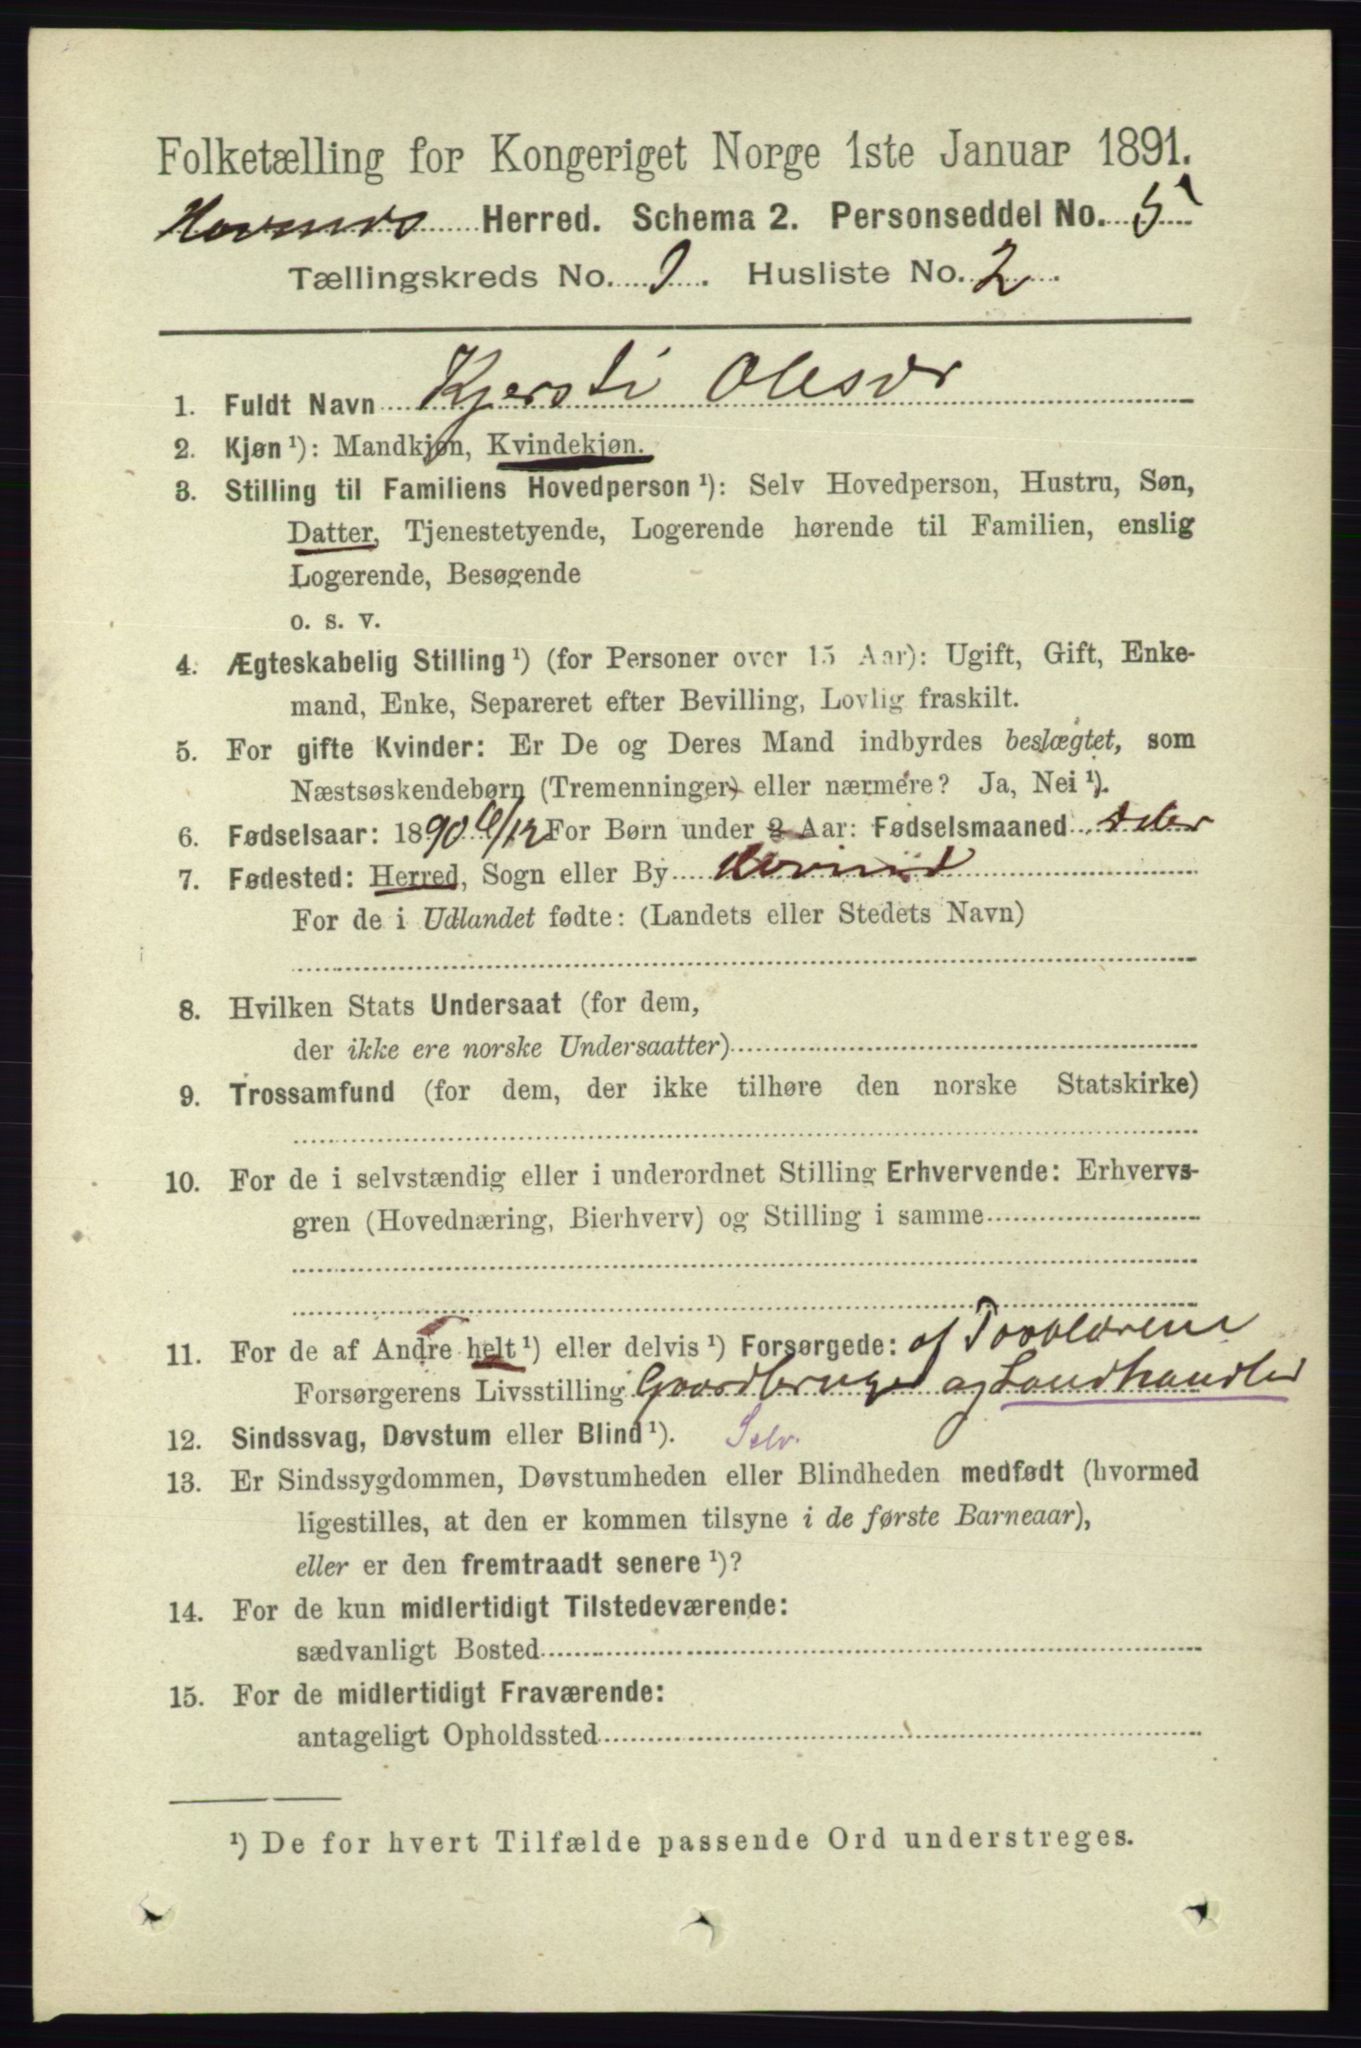 Folketælling for Kongeriget Norge 1ste Januar 1891.
Herred. Schema 2. Personseddel No. 5
Tællingskreds No. 9. Husliste No. 2.
1. Fuldt Navn Kjersti Olesdr
2. Kjøn ¹): Mandkjøn, Kvindekjøn.
3. Stilling til Familiens Hovedperson ¹): Selv Hovedperson, Hustru, Søn,
Datter, Tjenestetyende, Logerende hørende til Familien, enslig
Logerende, Besøgende
o. s. v.
4. Ægteskabelig Stilling ¹) (for Personer over 15 Aar): Ugift, Gift, Enke-
mand, Enke, Separeret efter Bevilling, Lovlig fraskilt.
5. For gifte Kvinder: Er De og Deres Mand indbyrdes beslægtet, som
Næstsøskendebørn (Tremenninger) eller nærmere? Ja, Nei ¹).
6. Fødselsaar: 1890 6/12 For Børn under 2 Aar: Fødselsmaaned
7. Fødested: Herred, Sogn eller By
For de i Udlandet fødte: (Landets eller Stedets Navn)
8. Hvilken Stats Undersaat (for dem,
der ikke ere norske Undersaatter)
9. Trossamfund (for dem, der ikke tilhøre den norske Statskirke)
10. For de i selvstændig eller i underordnet Stilling Erhvervende: Erhvervs-
gren (Hovednæring, Bierhverv) og Stilling i samme
11. For de af Andre helt ¹) eller delvis ¹) Forsørgede: af Forældrene
Forsørgerens Livsstilling Gaardbruger og Landhandler
12. Sindssvag, Døvstum eller Blind ¹). Selv.
13. Er Sindssygdommen, Døvstumheden eller Blindheden medfødt (hvormed
ligestilles, at den er kommen tilsyne i de første Barneaar),
eller er den fremtraadt senere ¹)?
14. For de kun midlertidigt Tilstedeværende:
sædvanligt Bosted
15. For de midlertidigt Fraværende:
antageligt Opholdssted
¹) De for hvert Tilfælde passende Ord understreges.